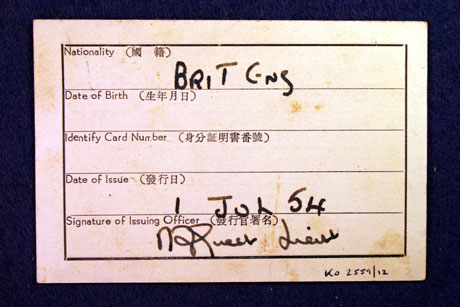 Nationality (國 籍)
BRIT ENG
Date of Birth (生年月日)
Identify Card Number (身分証明書番號)
Date of Issue (發行日)
1 JUL 54
Signature of Issuing Officer (發行官署名)
Lieut
KO 2559/12